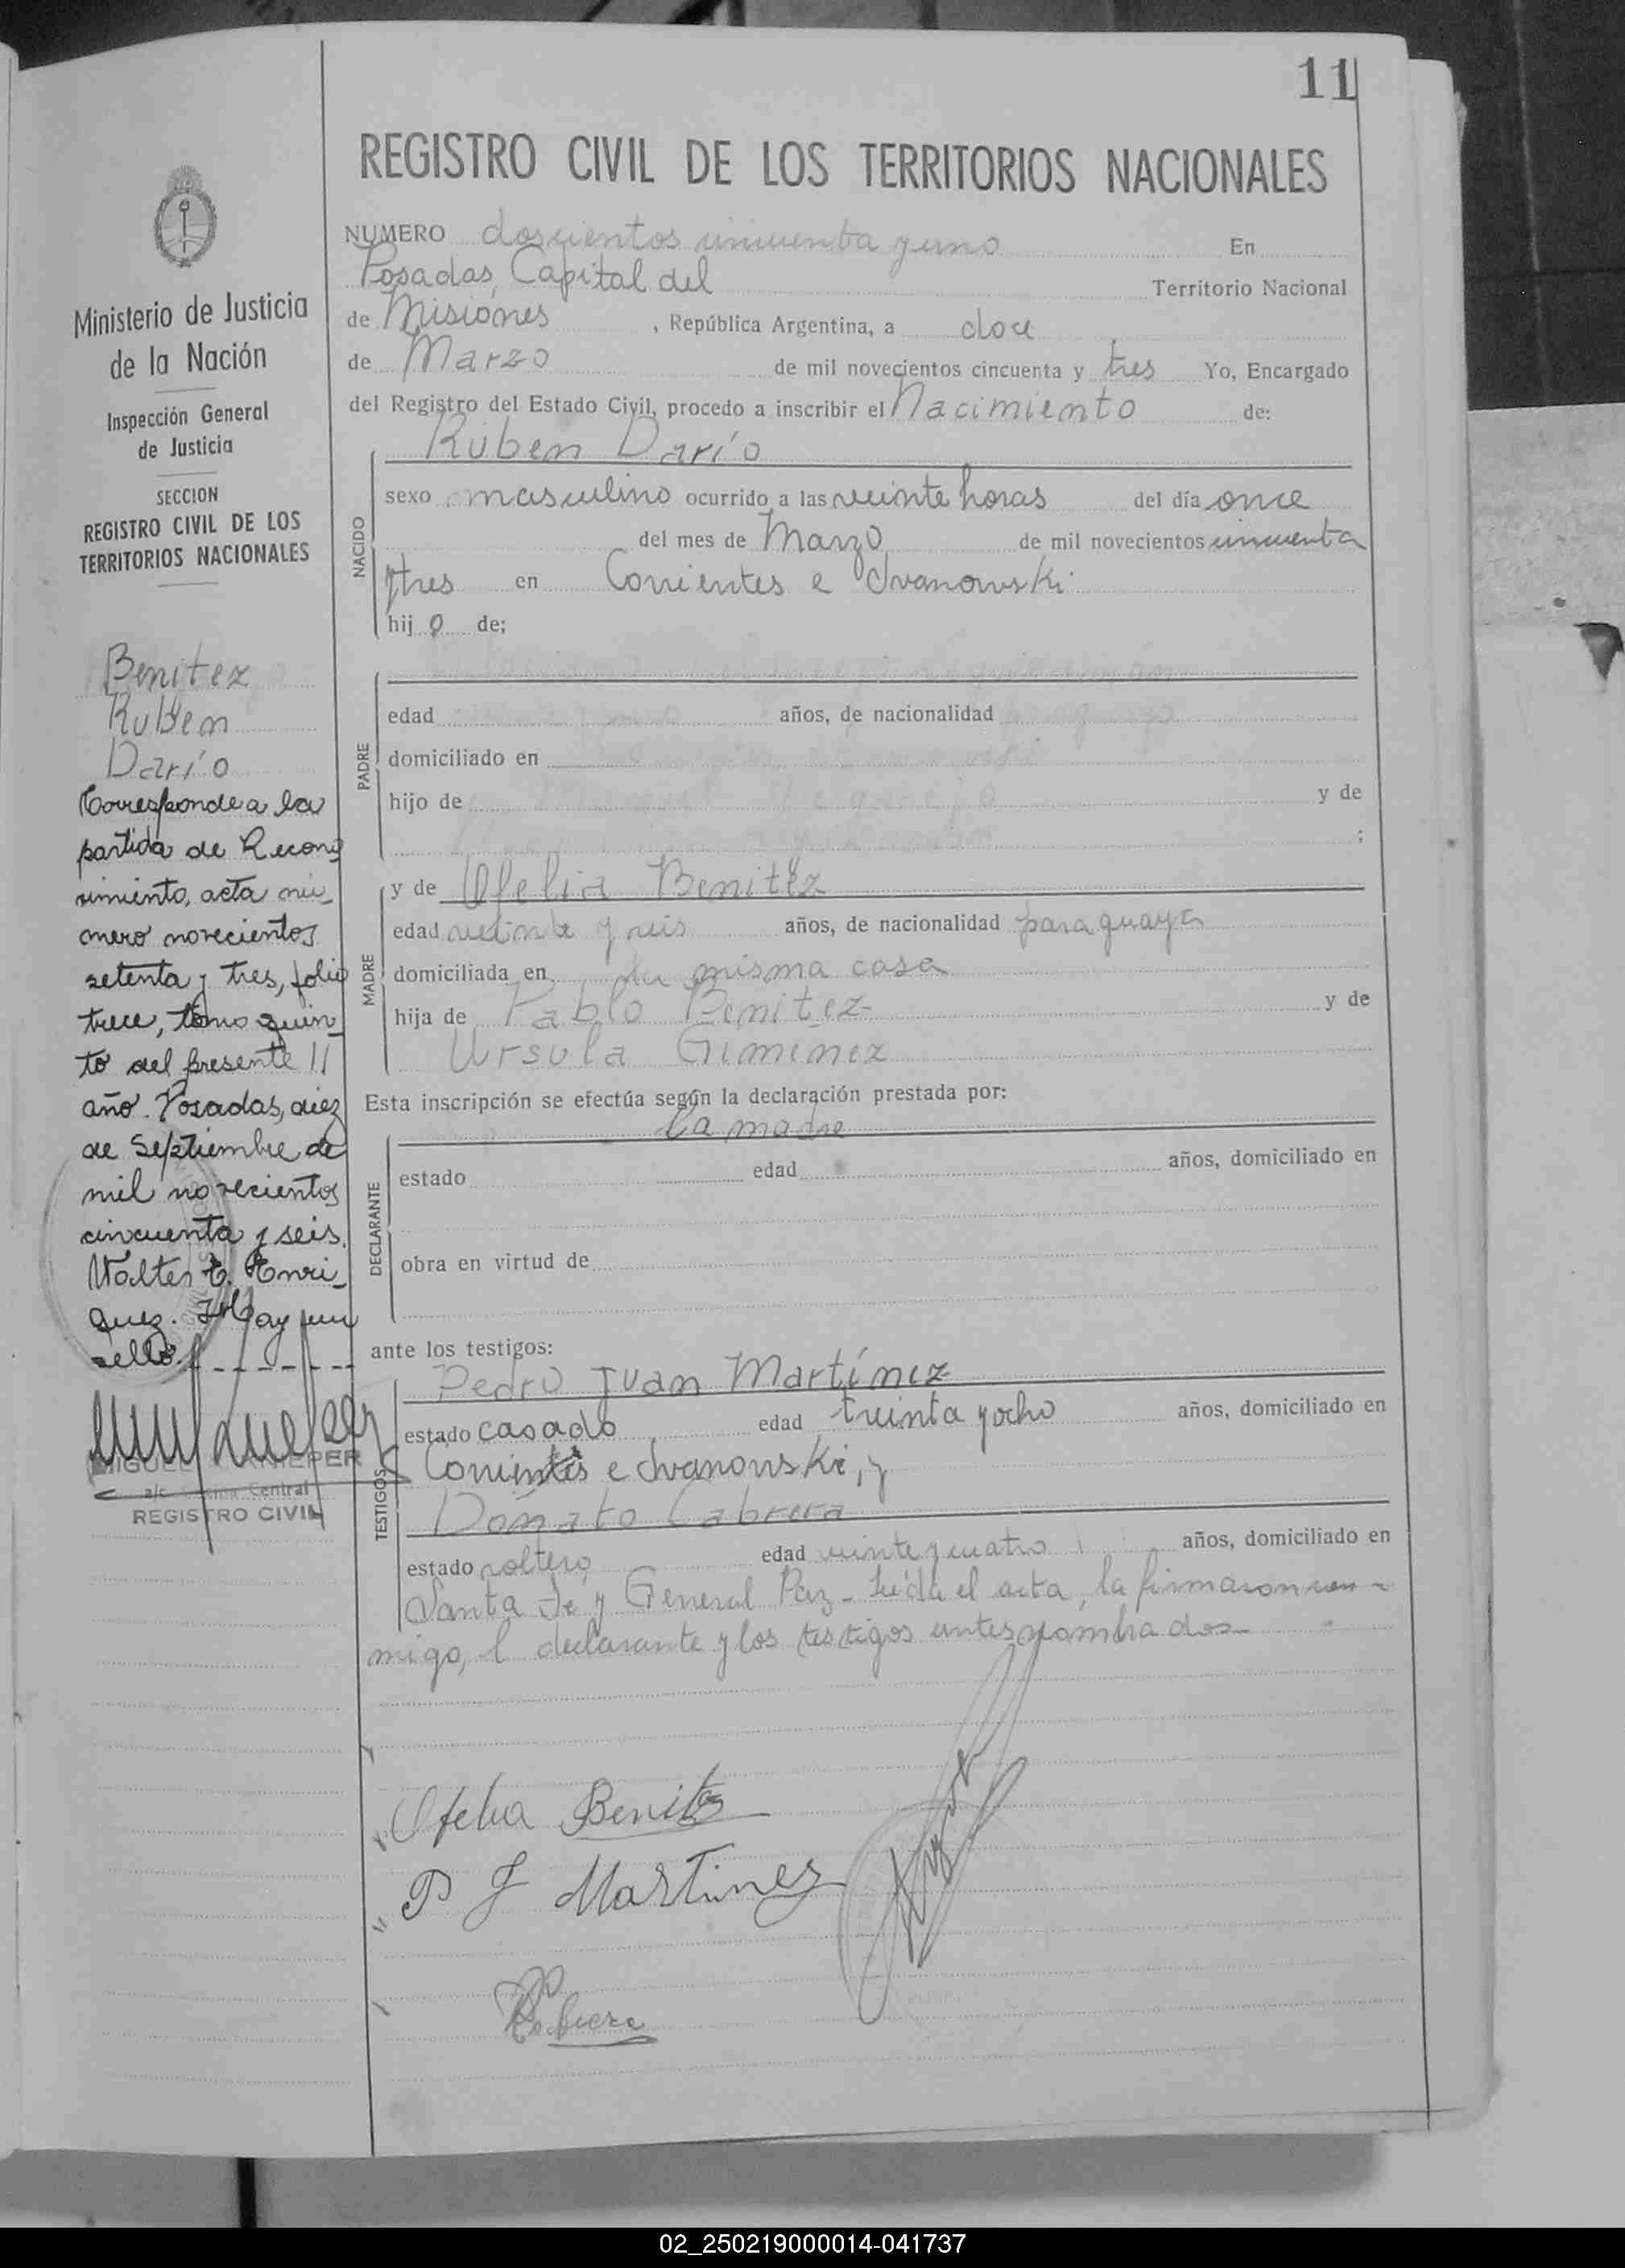 11
REGISTRO CIVIL DE LOS TERRITORIOS NACIONALES
NUMERO doscientos cincuenta y uno En
Posadas, Capital del Territorio Nacional
de Misiones, República Argentina, a doce
de Marzo de mil novecientos cincuenta y tres Yo, Encargado
del Registro del Estado Civil, procedo a inscribir el Nacimiento de:
Ruben Darío
NACIDO
sexo masculino ocurrido a las veinte horas del día once
del mes de Marzo de mil novecientos cincuenta
y tres en Corrientes e Ivanowski
hijo de;
PADRE
edad años, de nacionalidad
domiciliado en
hijo de y de
;
MADRE
y de Ofelia Benitez
edad veinte y seis años, de nacionalidad paraguaya
domiciliada en la misma casa
hija de Pablo Benitez- y de
Ursula Gimenez
Esta inscripción se efectúa según la declaración prestada por:
la madre
DECLARANTE
estado edad años, domiciliado en
obra en virtud de
ante los testigos:
TESTIGOS
Pedro Juan Martínez
estado casado edad treinta y ocho años, domiciliado en
Corrientes e Ivanowski, y
Donato Cabrera
estado soltero edad veinte y cuatro años, domiciliado en
Santa Fé y General Paz - Leída el acta, la firmaron con-
migo, el declarante y los testigos antes nombrados-
Ofelia Benitez
P J Martinez
Cabrera
Ministerio de Justicia
de la Nación
Inspección General
de Justicia
SECCION
REGISTRO CIVIL DE LOS
TERRITORIOS NACIONALES
Benitez
Ruben
Darío
Corresponde a la
partida de Recono
cimiento, acta nú_
mero novecientos
setenta y tres, folio
trece, tomo quin_
to del presente
año. Posadas, diez
de Septiembre de
mil novecientos
cincuenta y seis.
Walter E. Enri_
quez. Hay un
sello.
MIGUEL
a/c Oficina Central
REGISTRO CIVIL
02_250219000014-041737